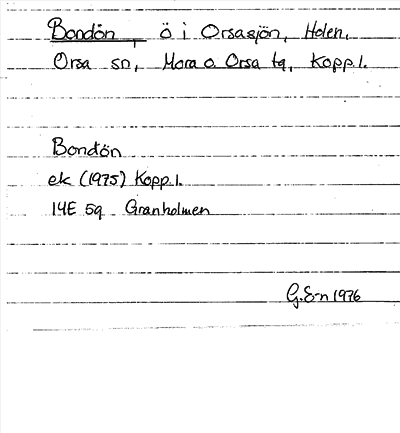 Bondön, ö i Orsasjön, Holen,
Orsa sn, Mora o Orsa tg, Kopp.l.
Bondön
ek (1975) Kopp.l.
14E 5g Granholmen
G.S-n 1976